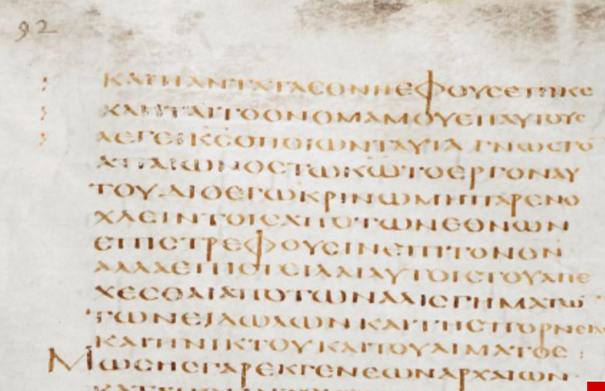 92
ΚΑΙΠΑΝΤΑΤΑΕΘΝΗΕΦΟΥϹΕΠΙΚΕ
ΚΛΗΤΑΙΤΟΟΝΟΜΑΜΟΥΕΠΑΥΤΟΥϹ
ΛΕΓΕΙΚϹΟΠΟΙΩΝΤΑΥΤΑΓΝΩϹΤΟ
ΑΠΑΙΩΝΟϹΤΩΚΩΤΟΕΡΓΟΝΑΥ
ΤΟΥΔΙΟΕΓΩΚΡΙΝΩΜΗΠΑΡΕΝΟ
ΧΛΕΙΝΤΟΙϹΑΠΟΤΩΝΕΘΝΩΝ
ΕΠΙϹΤΡΕΦΟΥϹΙΝΕΠΙΤΟΝΘΝ
ΑΛΛΑΕΠΙϹΤΙΛΑΙΑΥΤΟΙϹΤΟΥΑΠΕ
ΧΕϹΘΑΙΑΠΟΤΩΝΑΛΙϹΓΗΜΑΤΩ
ΤΩΝΕΙΔΩΛΩΝΚΑΙΤΗϹΠΟΡΝΕΙΑϹ
ΚΑΙΠΝΙΚΤΟΥΚΑΙΤΟΥΑΙΜΑΤΟϹ
ΜΩϹΗϹΓΑΡΕΚΓΕΝΕΩΝΑΡΧΑΙΩΝ